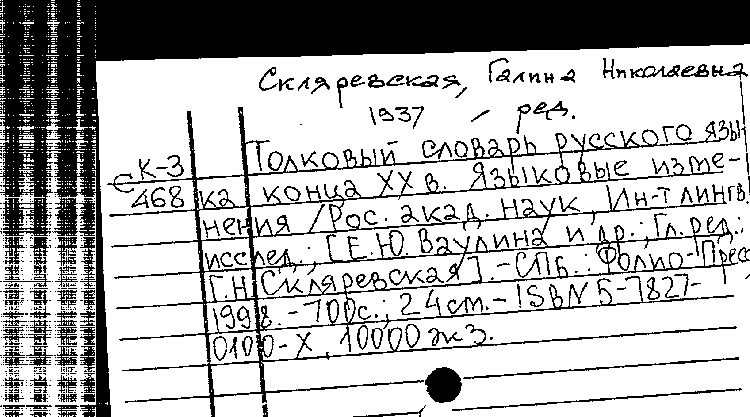 Скляревская, Галина Николаевна
1937 - ред.
К-3 Толковый словарь русского язы-
468 ка конца XX в. Языковые изме-
нения / Рос. акад. наук, Ин-т лингв.
исслед.; [Е.Ю. Ваулина и др.; Гл. ред.:
Г.Н. Скляревская]. - СПб.: Фолио-Пресс
1998. - 700с.; 24 см. - ISBN 5-7827-
0100-X, 10000 экз.